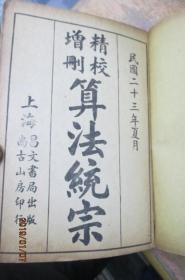 民國二十三年夏月
精校
增刪
算法統宗
上海昌文書局出版
尚古山房印行
2019/01/07